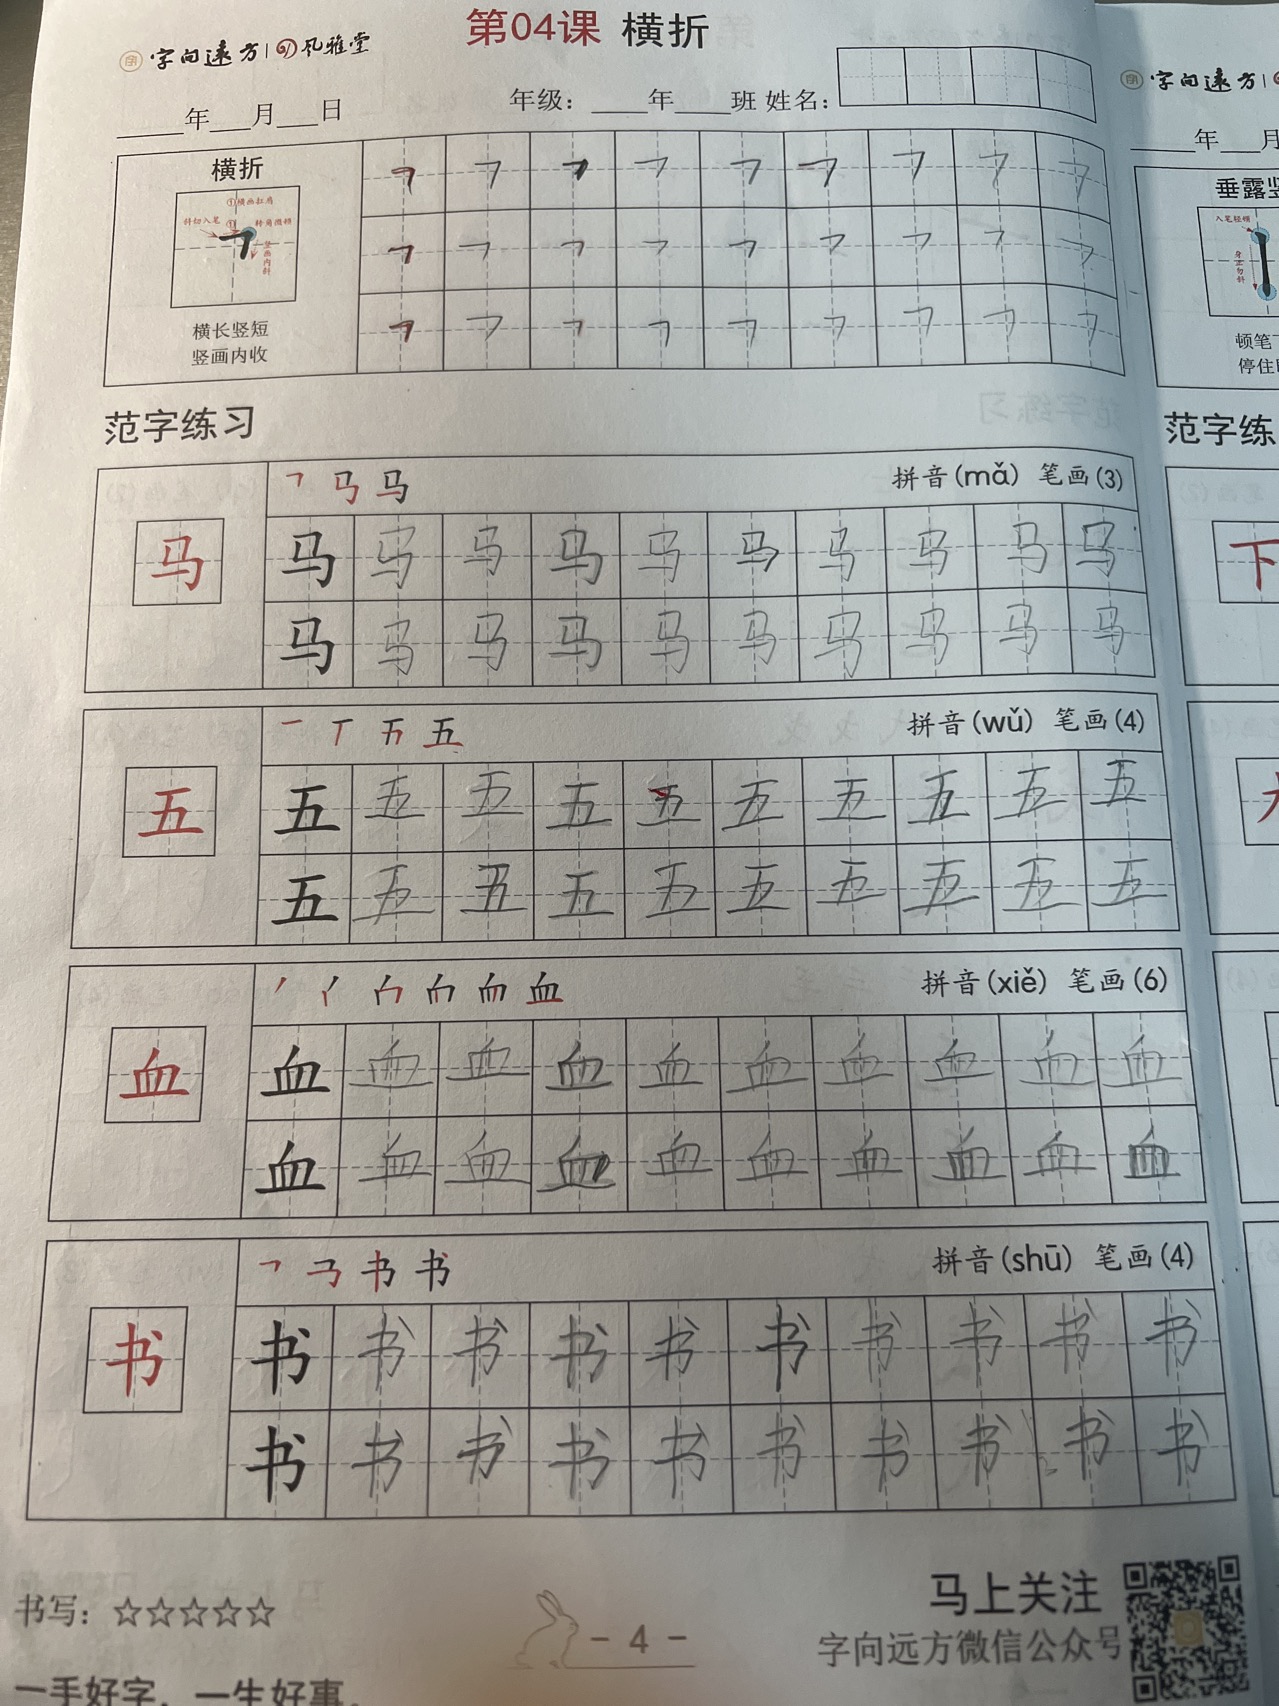 第04课 横折
字向远方 | 风雅堂
____年___月___日
年级：____年____班 姓名：
横折
①横画扛肩
斜切入笔
①
转角微顿
竖画内斜
横长竖短
竖画内收
㇕ ㇕ ㇕ ㇕ ㇕ ㇕ ㇕ ㇕ ㇕
㇕ ㇕ ㇕ ㇕ ㇕ ㇕ ㇕ ㇕ ㇕
㇕ ㇕ ㇕ ㇕ ㇕ ㇕ ㇕ ㇕ ㇕
范字练习
马
马 拼音(mǎ) 笔画(3)
马 马 马 马 马 马 马 马 马 马
马 马 马 马 马 马 马 马 马 马
五
一 丅 五 拼音(wǔ) 笔画(4)
五 五 五 五 五 五 五 五 五 五
五 五 五 五 五 五 五 五 五 五
血
血 拼音(xiě) 笔画(6)
血 血 血 血 血 血 血 血 血 血
血 血 血 血 血 血 血 血 血 血
书
书 拼音(shū) 笔画(4)
书 书 书 书 书 书 书 书 书 书
书 书 书 书 书 书 书 书 书 书
书写：☆☆☆☆☆
- 4 -
马上关注
字向远方微信公众号
一手好字，一生好事。
字向远方 |
____年___月
垂露竖
入笔轻顿
身正勿斜
顿笔
停住
范字练
下